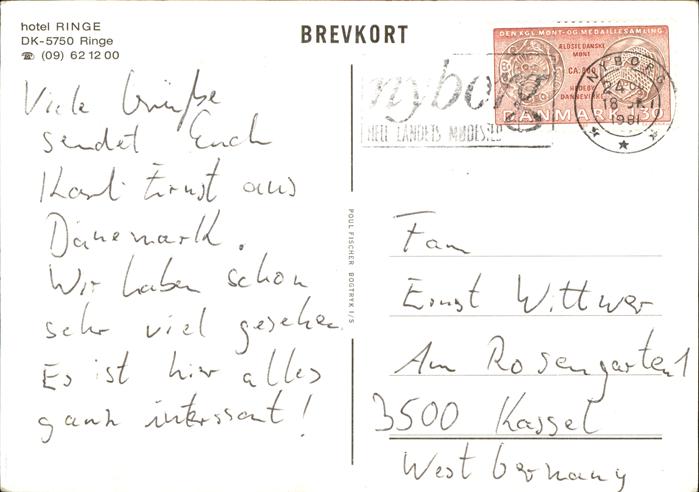 hotel RINGE
DK-5750 Ringe
☎ (09) 62 12 00
BREVKORT
DEN KGL. MØNT- OG MEDAILLESAMLING
ÆLDSTE DANSKE
MØNT
CA. 800
HEDEBY
DANNEVIRKE
DANMARK 130
nyborg
HELE LANDETS MØDESTED
NYBORG
18
1981
Viele Grüße
sendet Euch
Karl-Ernst aus
Dänemark.
Wir haben schon
sehr viel gesehen.
Es ist hier alles
ganz interssant!
POUL FISCHER BOGTRYK I/S
Fam
Ernst Wittwer
Am Rosengarten 1
3500 Kassel
West Germany